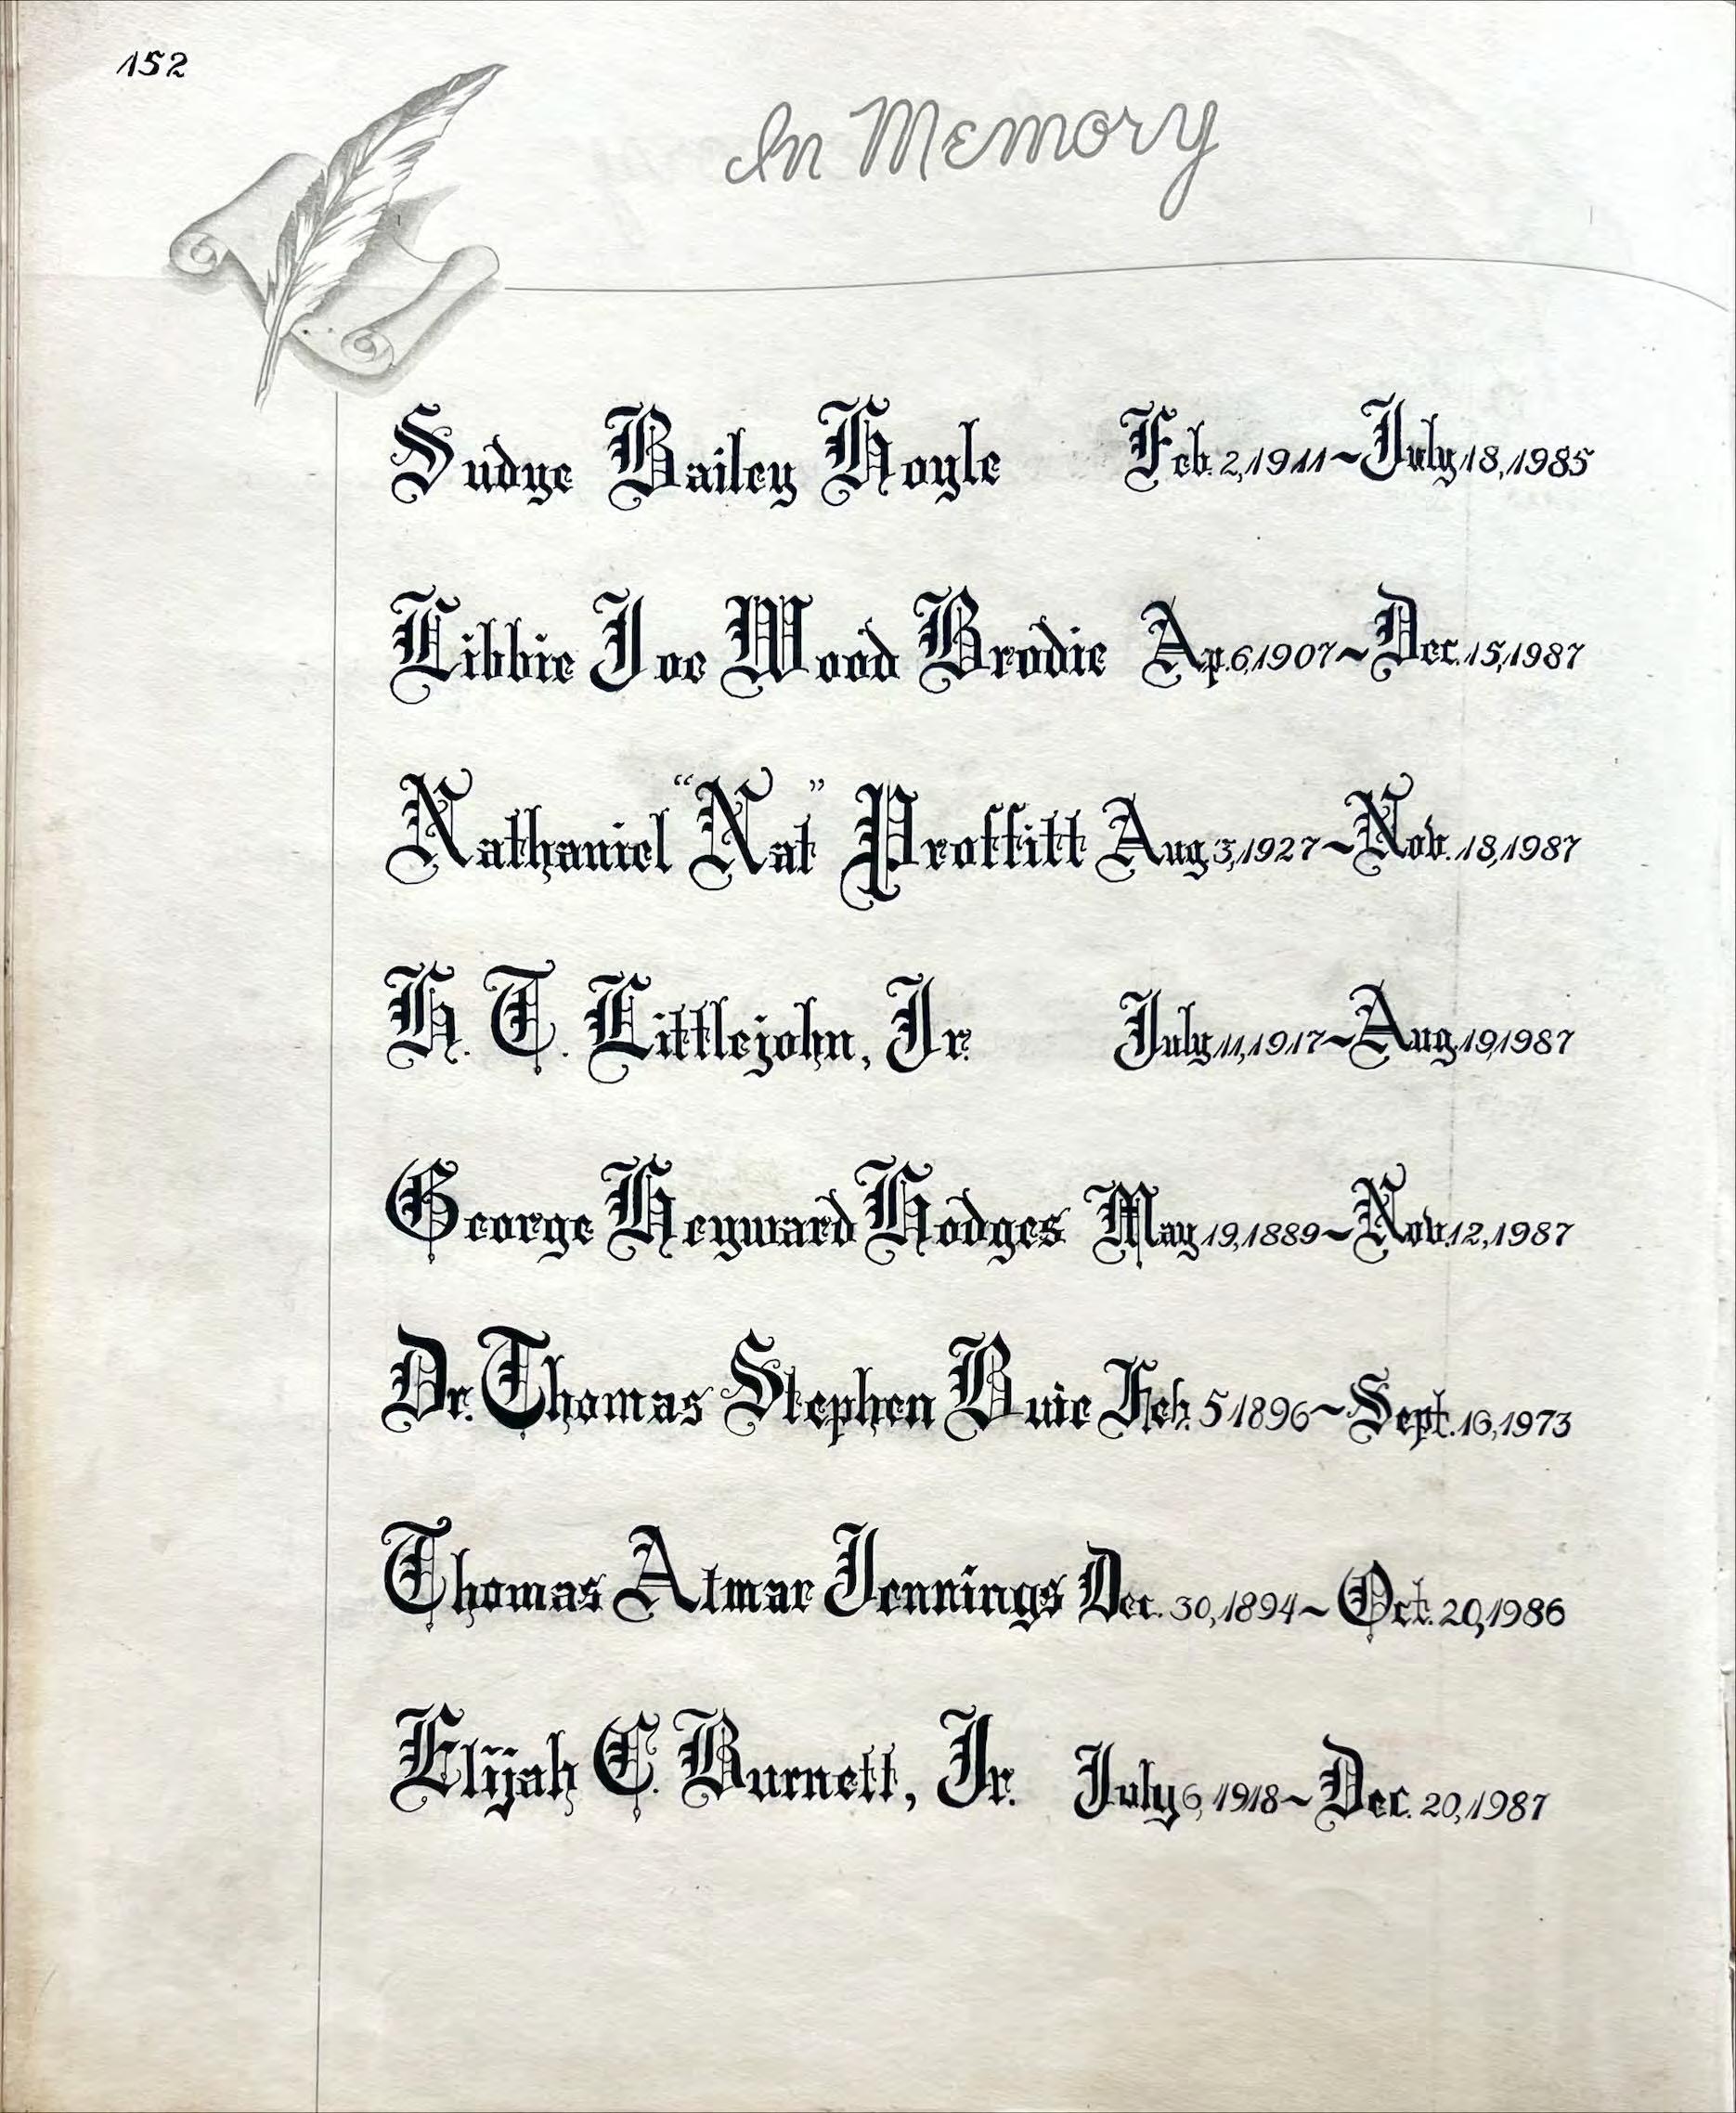 152
In Memory
Sudye Bailey Hoyle Feb. 2, 1911~July 18, 1985
Libbie Joe Wood Brodie Ap. 6, 1907~Dec. 15, 1987
Nathaniel “Nat” Proffitt Aug 3, 1927~Nov. 18, 1987
H. T. Littlejohn, Jr. July 11, 1917~Aug. 19, 1987
George Heyward Hodges May 19, 1889~Nov. 12, 1987
Dr. Thomas Stephen Buie Feb. 5 1896~Sept. 16, 1973
Thomas Atmar Jennings Dec. 30, 1894~Oct. 20, 1986
Elijah C. Burnett, Jr. July 6, 1918~Dec. 20, 1987